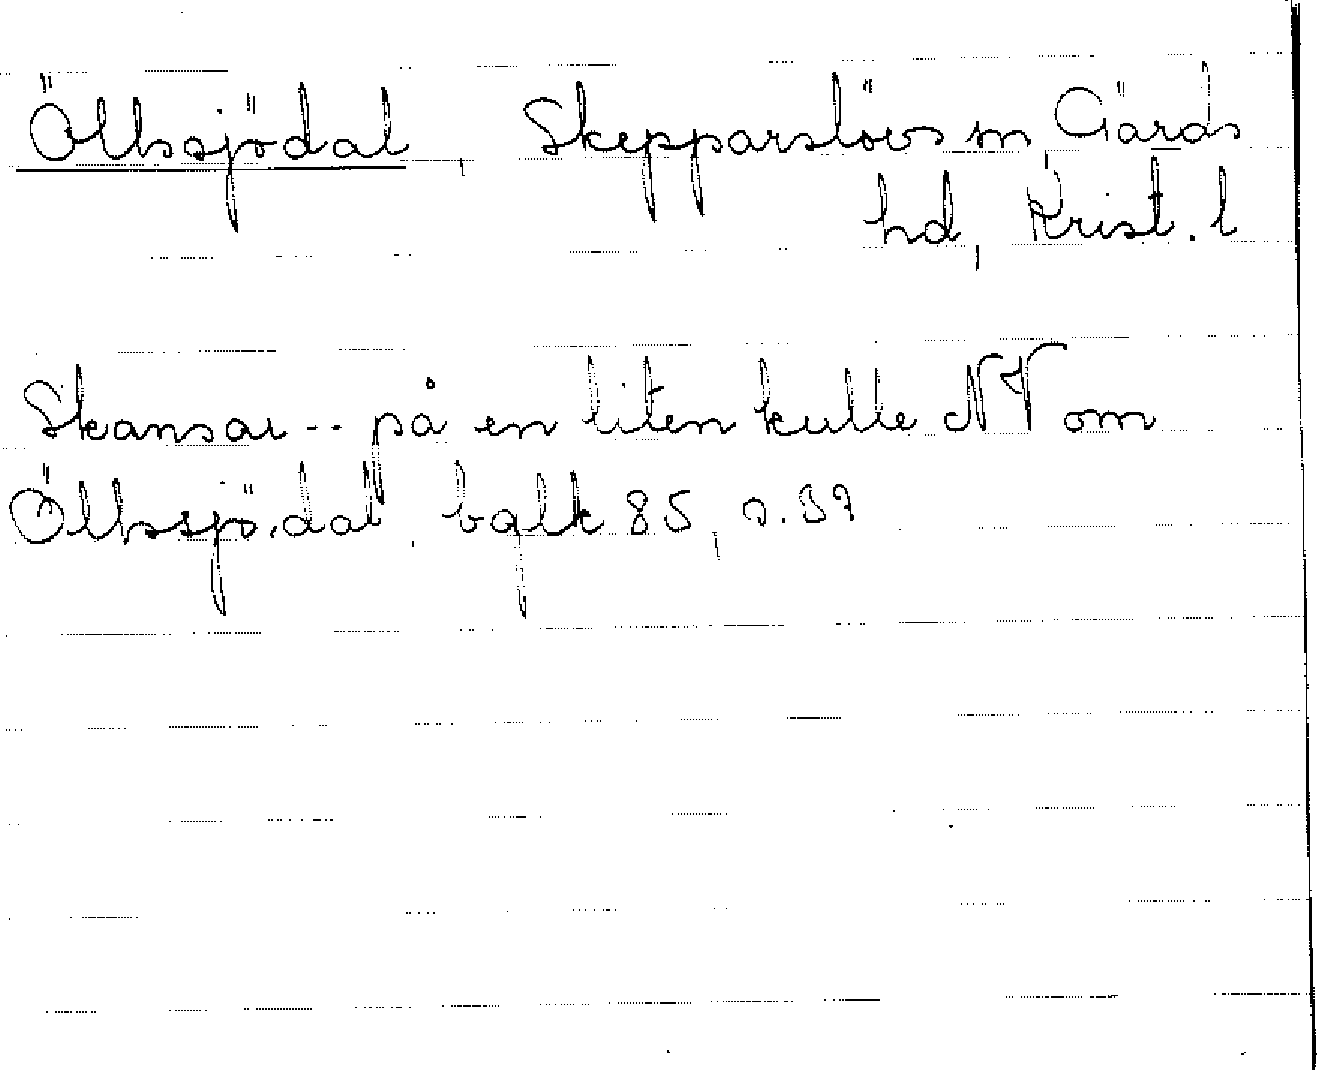 Öllsjödal, Skepparslövs sn, Gärds
hd, Krist. l
Skansar -- på en liten kulle NV om
Öllssjö.dal, bglk. 85, s. 37